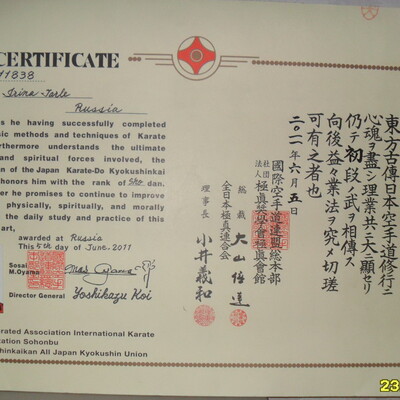 CERTIFICATE
11838
Irina
Russia
s he having successfully completed
ic methods and techniques of Karate
rthermore understands the ultimate
and spiritual forces involved, the
n of the Japan Karate-Do Kyokushinkai
honors him with the rank of Sho dan.
er he promises to continue to improve
physically, spiritually, and morally
the daily study and practice of this
art,
awarded at Russia
This 5th day of June. 2011
Sosai
M.Oyama
Mas Oyama
Director General Yoshikazu Koi
rated Association International Karate
tation Sohonbu
hinkaikan All Japan Kyokushin Union
東方古傳日本空手道修行ニ
心魂ヲ盡シ理業共ニ大ニ顕セリ
仍テ初段ノ武ヲ相傳ス
向後益々業法ヲ究メ切瑳
可有之者也
二〇一一年六月五日
國際空手道連盟総本部
社団法人極真奨学會極真會館
総裁 大山倍達
全日本極真連合会
理事長 小井義和
23